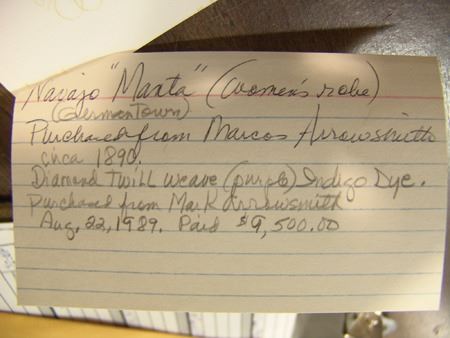 Navajo "Manta" (women's robe)
(Germantown)
Purchased from Marcos Arrowsmith
circa 1890.
Diamond Twill weave (purple) Indigo Dye.
Purchased from Mark Arrowsmith
Aug. 22, 1989. Paid $9,500.00